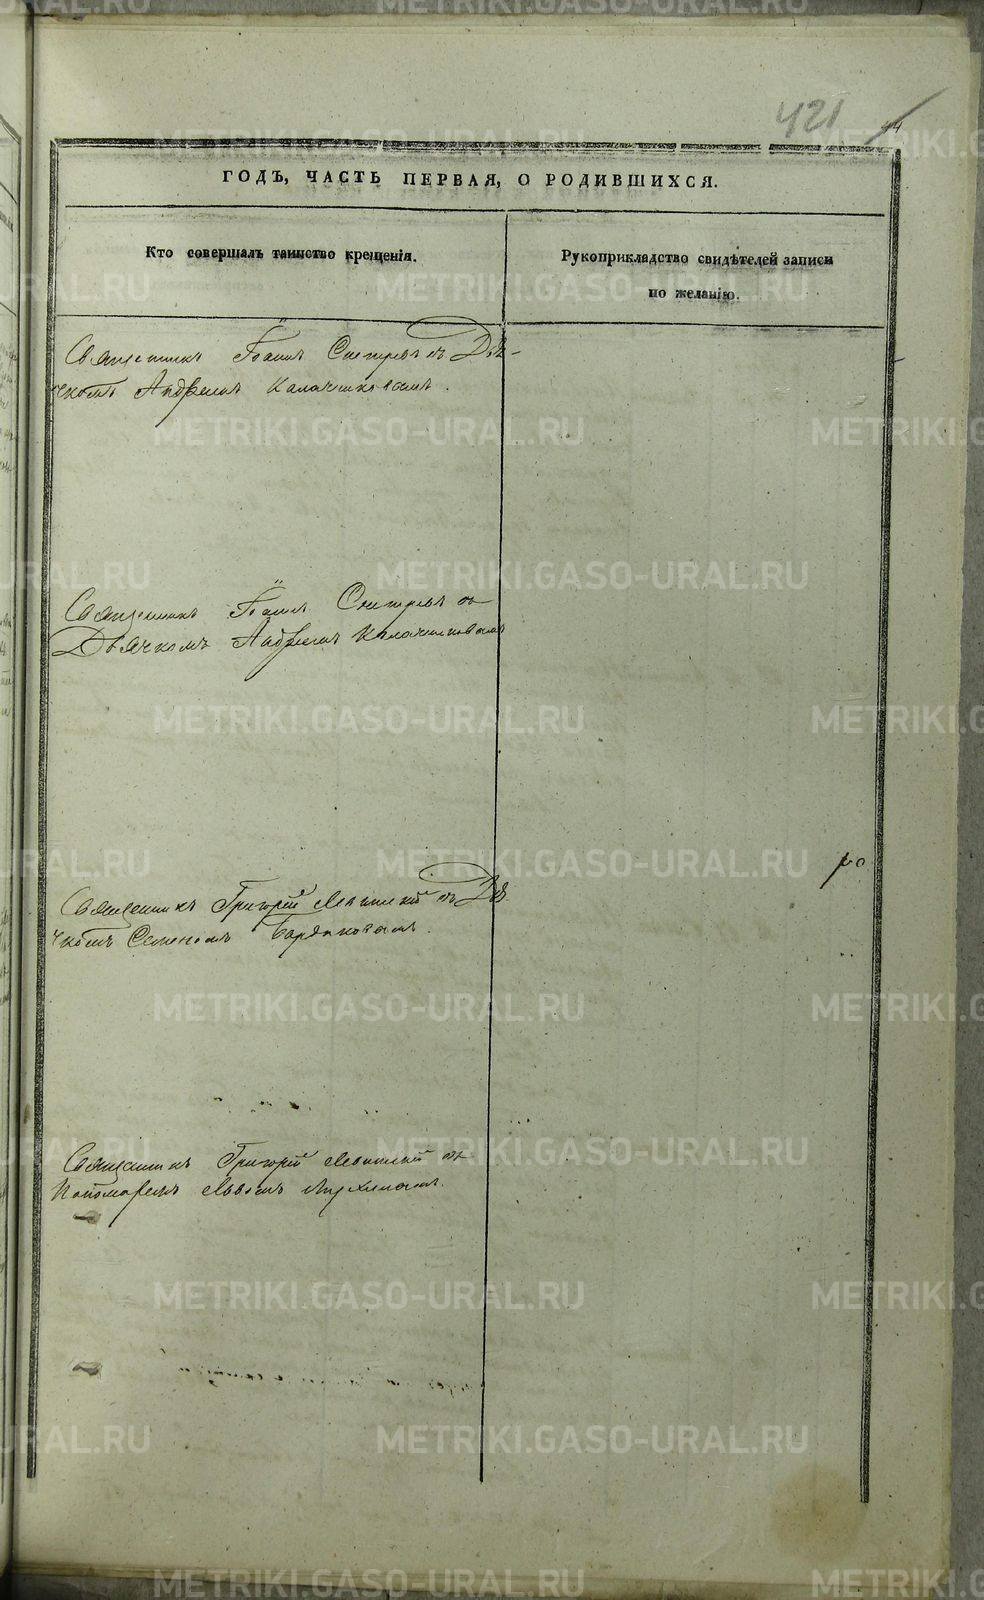 421
44
ГОДЪ, ЧАСТЬ ПЕРВАЯ, О РОДИВШИХСЯ.
Кто совершалъ таинство крещенія.
Рукоприкладство свидѣтелей записи
по желанію.
Священникъ Іоаннъ съ Дья-
чкомъ Андреемъ Калачниковымъ.
Священникъ Іоаннъ съ
Дьячкомъ Андреемъ Калачниковымъ
Священникъ Григорій Левитскій съ Дья
чкомъ Семеномъ
Священникъ Григорій Левитскій съ
Пономаремъ Львомъ
METRIKI.GASO-URAL.RU